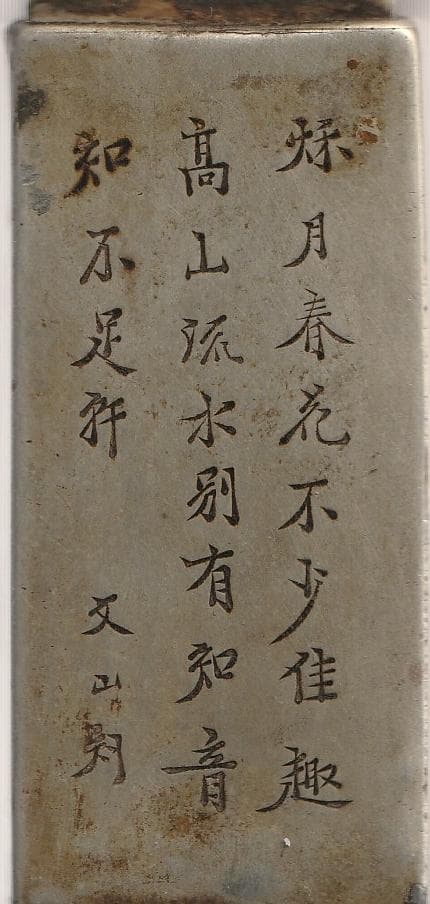 秌月春花不少佳趣
髙山流水别有知音
知不足軒
文山